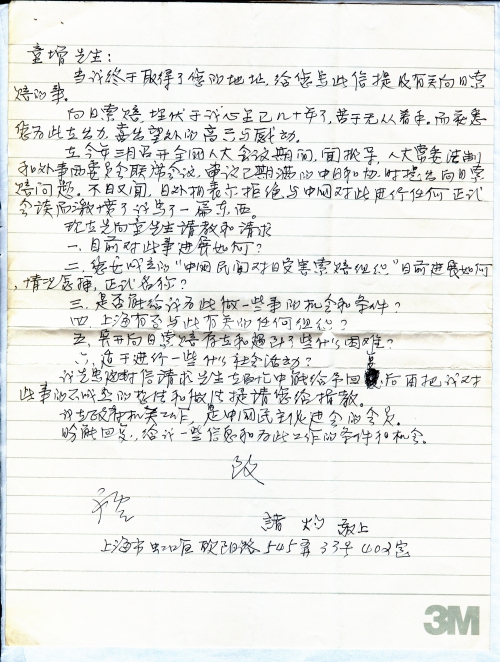 童增先生:
当我终于取得了您的地址,给您写此信提及有关向日索
赔的事。
向日索赔,埋伏于我心里已几十年了,苦于无从着手。而获悉
您为此在出力,喜出望外的高兴与感动。
在今年三月召开全国人大会议期间,闻报导,人大常委法制
和外事两委员会联席会议,审议已期满的中日和约,时提出向日索
赔问题。不日又闻,日外相表示拒绝与中国对此进行任何正式
会谈而激愤了我写了一篇东西。
现在先向童先生请教和请求
一.目前对此事进展如何?
二.您要成立的"中国民间对日受害索赔组织"目前进展如何
,情况怎样,正式名称?
三.是否能给我为此做一些事的机会和条件?
四.上海有否与此有关的任何组织?
五.展开向日索赔存在和遇到了些什么困难?
六.适于进行一些什么社会活动?
我先思此封信请求先生在百忙中能给予回,后再把我对
此事的不成熟的拙作提请您给指教。
我在政府机关工作,是中国民主促进会的会员。
盼能回复,给我一些信息和为此工作的条件和机会。
致
礼
诸灼 敬上
上海市虹口区欧阳路545弄33号402室
3M